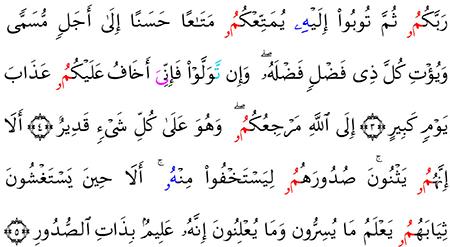 رَبَّكُمُۥ ثُمَّ تُوبُوٓا۟ إِلَيْهِۦ يُمَتِّعْكُمُۥ مَتَـٰعًا حَسَنًا إِلَىٰٓ أَجَلٍۢ مُّسَمًّى
وَيُؤْتِ كُلَّ ذِى فَضْلٍۢ فَضْلَهُۥ ۖ وَإِن تَّوَلَّوْا۟ فَإِنِّىَ أَخَافُ عَلَيْكُمُۥ عَذَابَ
يَوْمٍۢ كَبِيرٍ ﴿٣﴾ إِلَى ٱللَّهِ مَرْجِعُكُمُۥ ۖ وَهُوَ عَلَىٰ كُلِّ شَىْءٍۢ قَدِيرٌ ﴿٤﴾ أَلَآ
إِنَّهُمُۥ يَثْنُونَ صُدُورَهُمُۥ لِيَسْتَخْفُوا۟ مِنْهُۥ ۚ أَلَا حِينَ يَسْتَغْشُونَ
ثِيَابَهُمُۥ يَعْلَمُ مَا يُسِرُّونَ وَمَا يُعْلِنُونَ إِنَّهُۥ عَلِيمٌۢ بِذَاتِ ٱلصُّدُورِ ﴿٥﴾